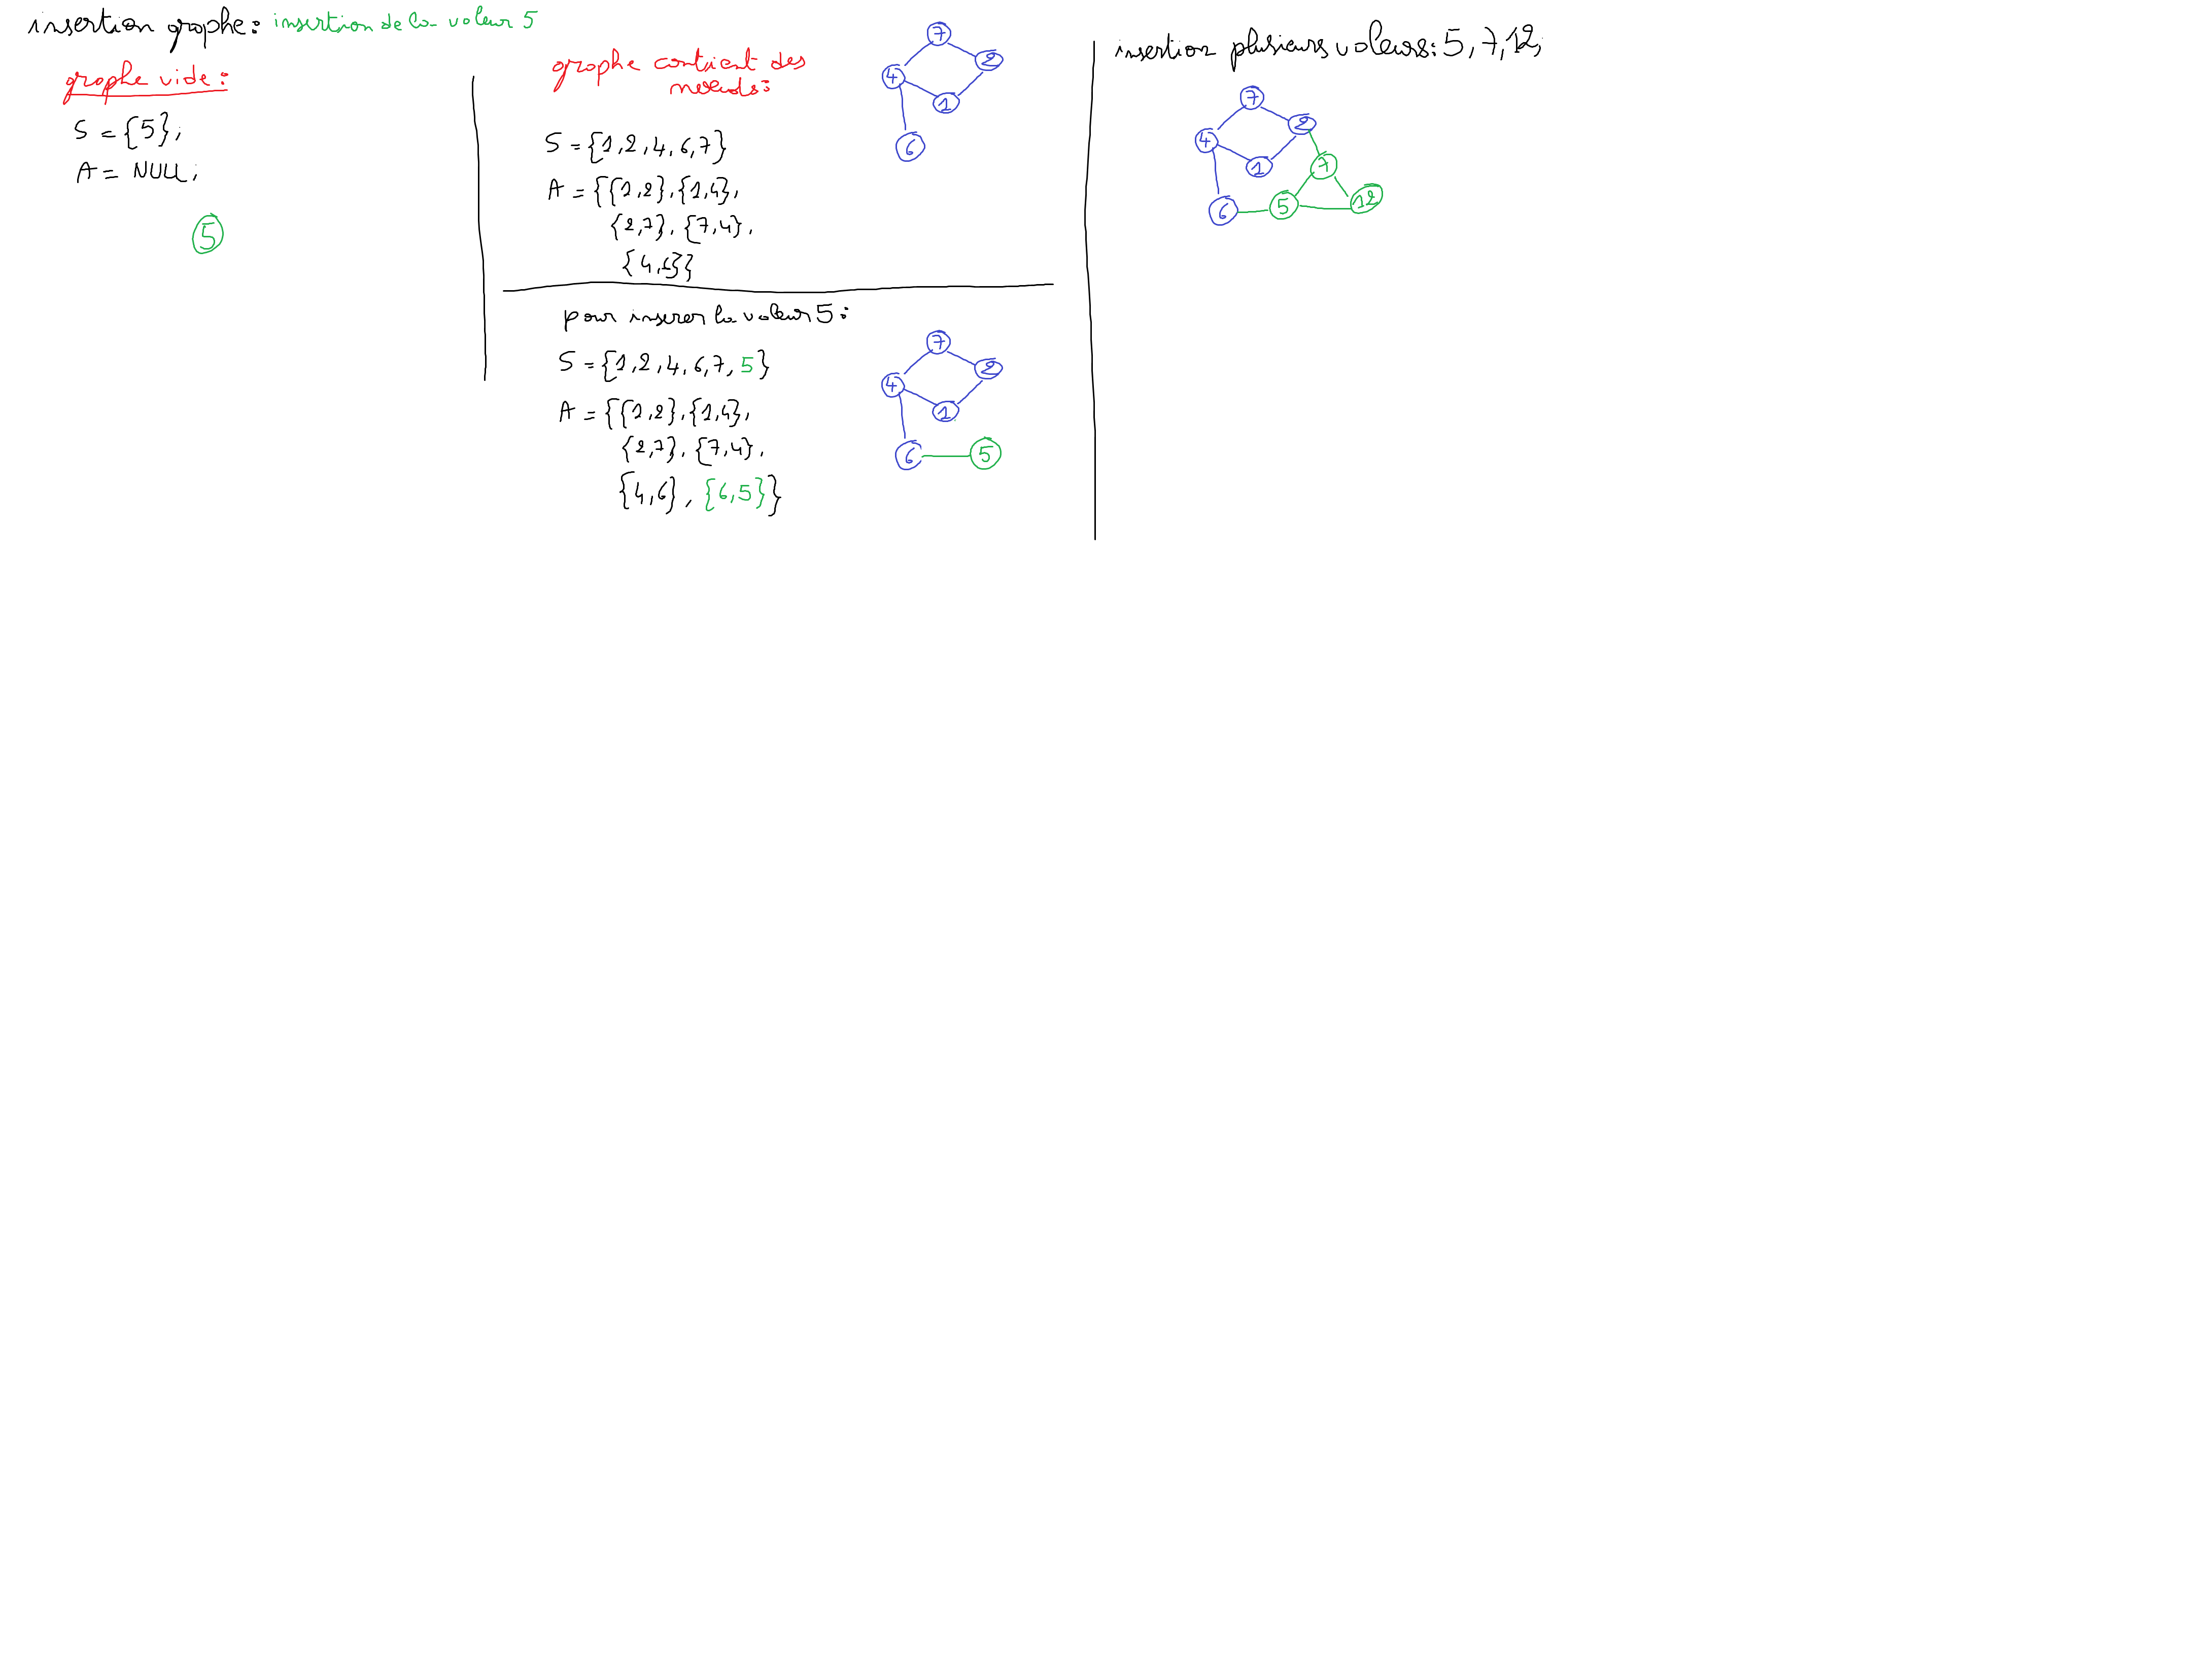 insertion graphe: insertion de la valeur 5
graphe vide:
S = {5};
A = NULL;
5
graphe contient des
nœuds:
S = {1,2,4,6,7}
A = {{1,2},{1,4},
{2,7},{7,4},
{4,6}}
7
2
4
1
6
pour inserer la valeur 5:
S = {1,2,4,6,7,5}
A = {{1,2},{1,4},
{2,7},{7,4},
{4,6},{6,5}}
7
2
4
1
6 5
insertion plusieurs valeurs: 5,7,12,
7
2
4
1 7
6 5 12